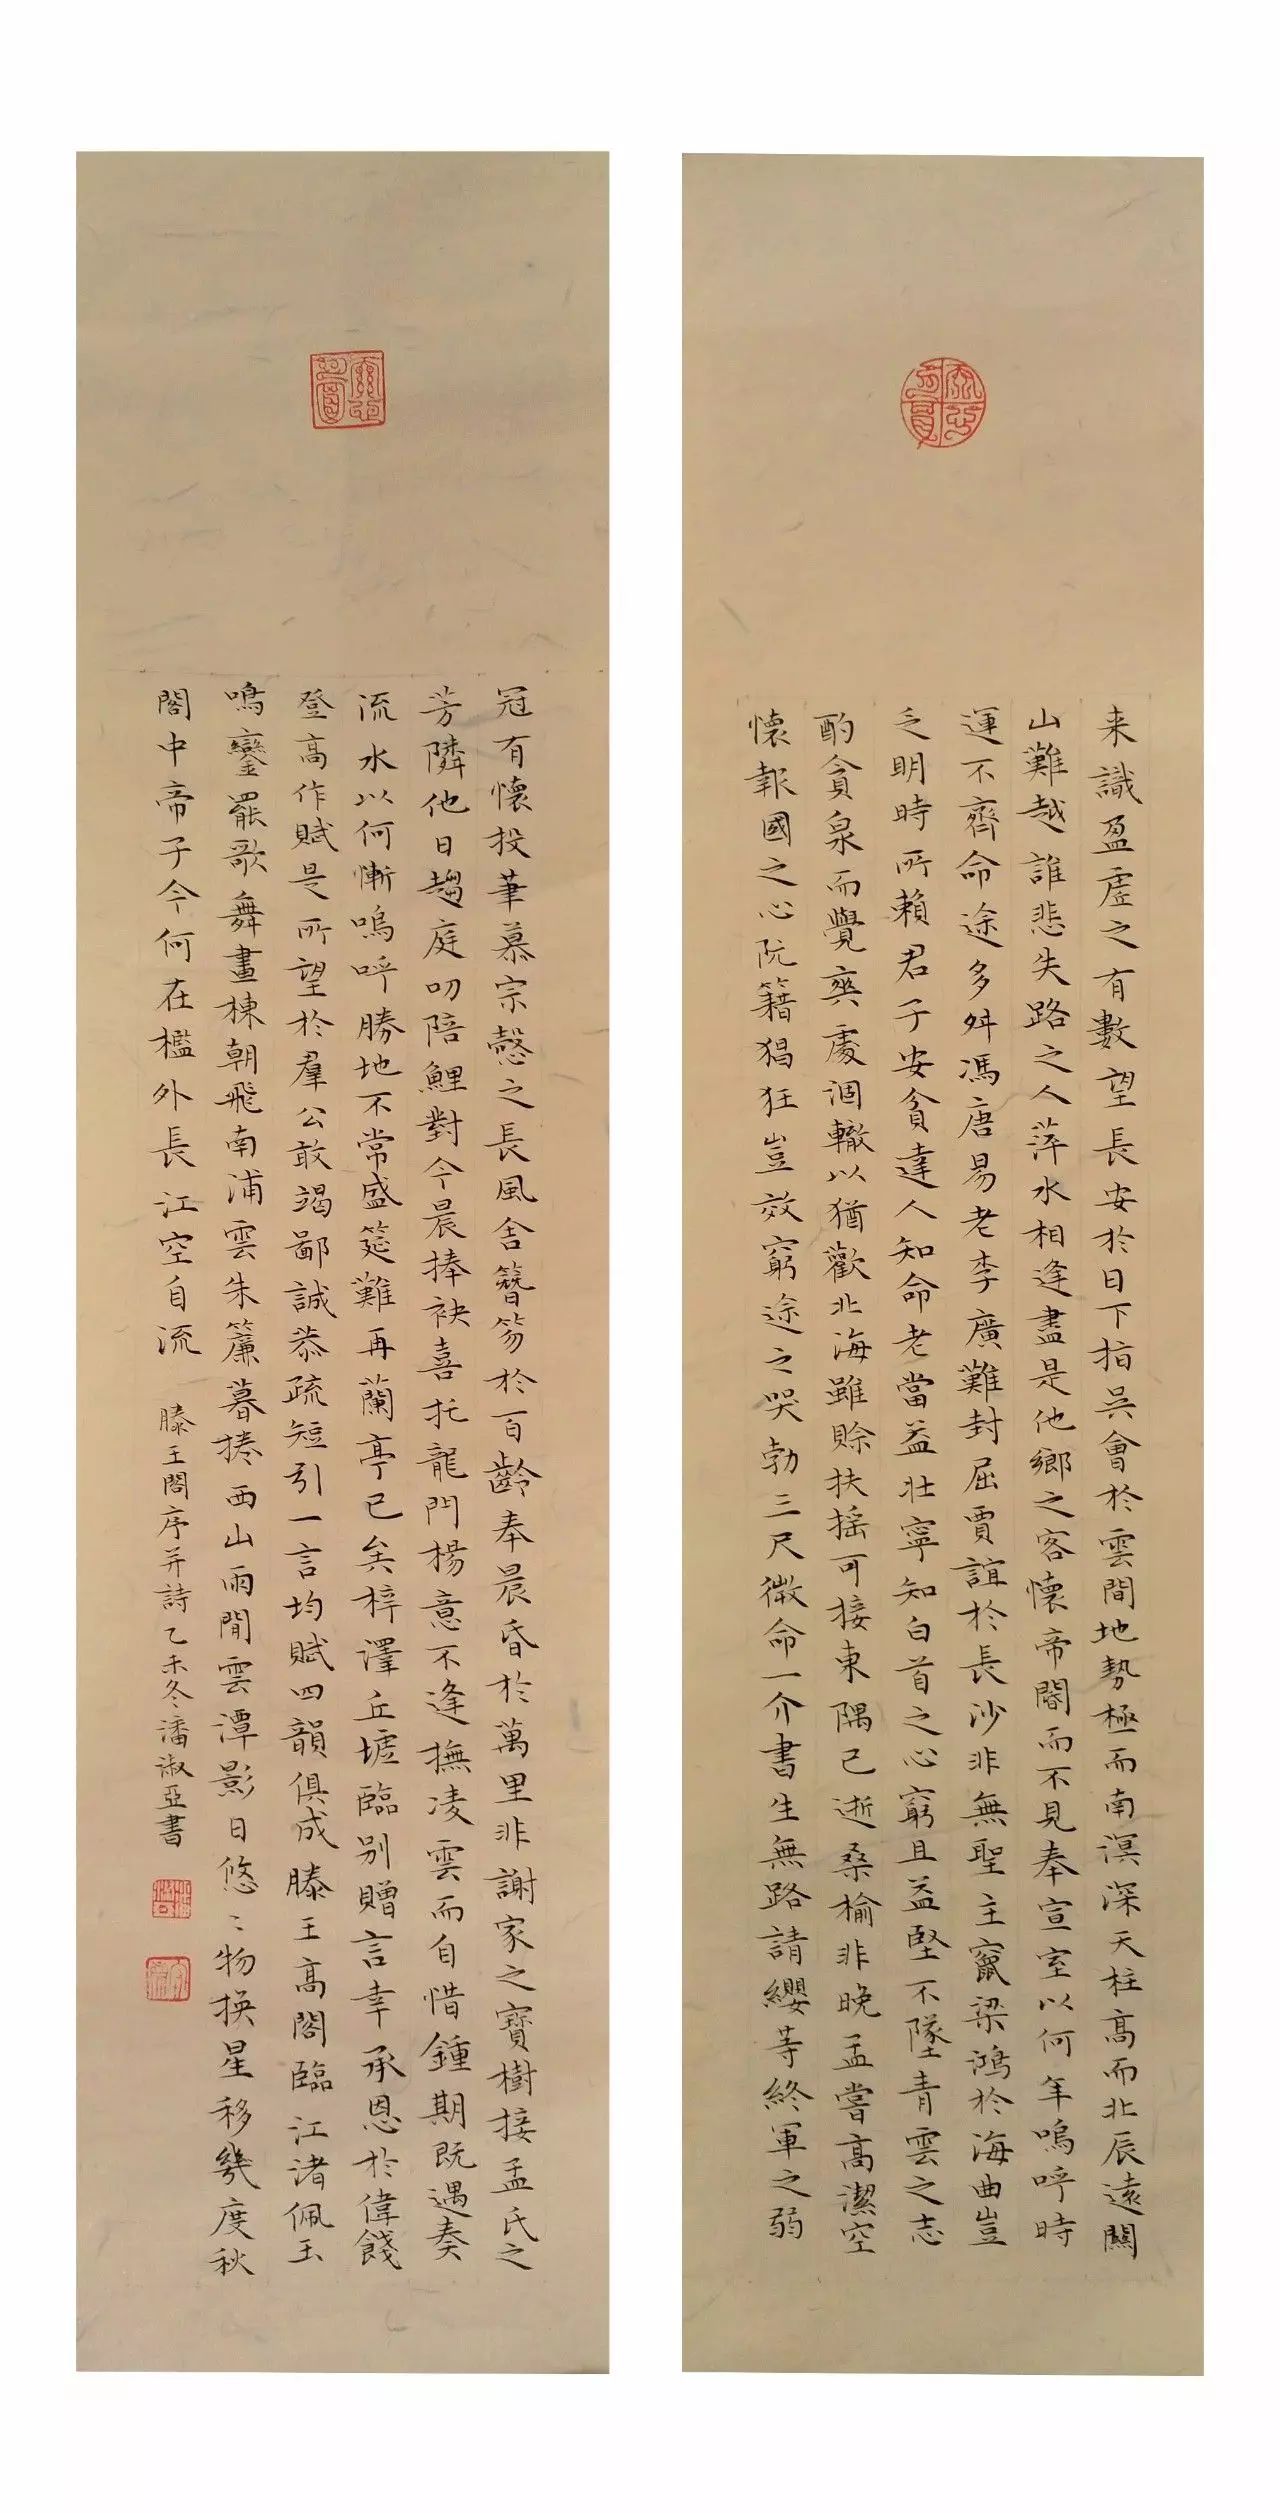 来識盈虛之有數望長安於日下指吳會於雲間地勢極而南溟深天柱高而北辰遠關
山難越誰悲失路之人萍水相逢盡是他鄉之客懷帝閽而不見奉宣室以何年嗚呼時
運不齊命途多舛馮唐易老李廣難封屈賈誼於長沙非無聖主竄梁鴻於海曲豈
乏明時所賴君子安貧達人知命老當益壯寧知白首之心窮且益堅不墜青雲之志
酌貪泉而覺爽處涸轍以猶歡北海雖賒扶搖可接東隅已逝桑榆非晚孟嘗高潔空
懷報國之心阮籍猖狂豈效窮途之哭勃三尺微命一介書生無路請纓等終軍之弱
冠有懷投筆慕宗愨之長風舍簪笏於百齡奉晨昏於萬里非謝家之寶樹接孟氏之
芳隣他日趨庭叨陪鯉對今晨捧袂喜托龍門楊意不逢撫凌雲而自惜鍾期既遇奏
流水以何慚嗚呼勝地不常盛筵難再蘭亭已矣梓澤丘墟臨別贈言幸承恩於偉餞
登高作賦是所望於羣公敢竭鄙誠恭疏短引一言均賦四韻俱成滕王高閣臨江渚佩玉
鳴鑾罷歌舞畫棟朝飛南浦雲朱簾暮捲西山雨閒雲潭影日悠〻物換星移幾度秋
閣中帝子今何在檻外長江空自流
滕王閣序并詩乙未冬潘淑亞書